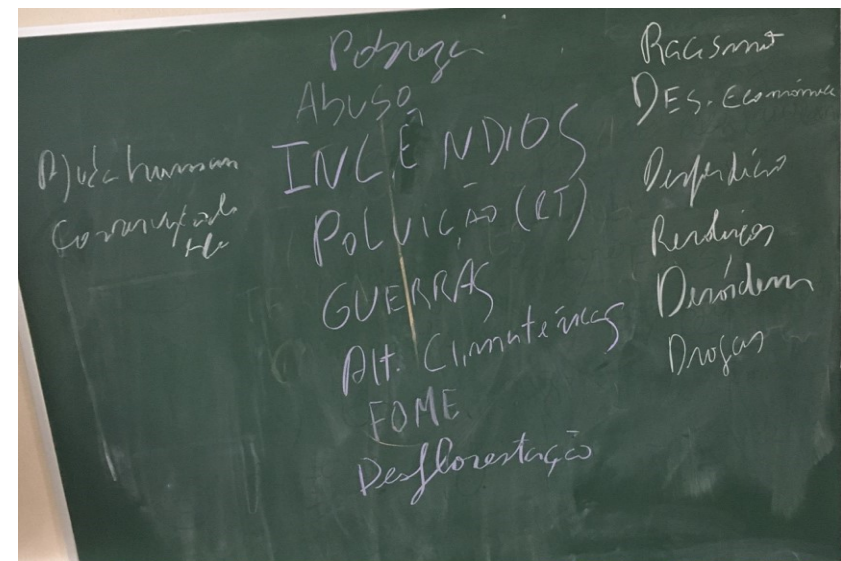 Ajuda human
Pobreza
Abuso
INCÊNDIOS
POLUIÇÃO (RT)
GUERRAS
Alt. Climatéricas
FOME
Desflorestação
Racismo
DES. Económica
Desperdício
Desórdem
Drogas